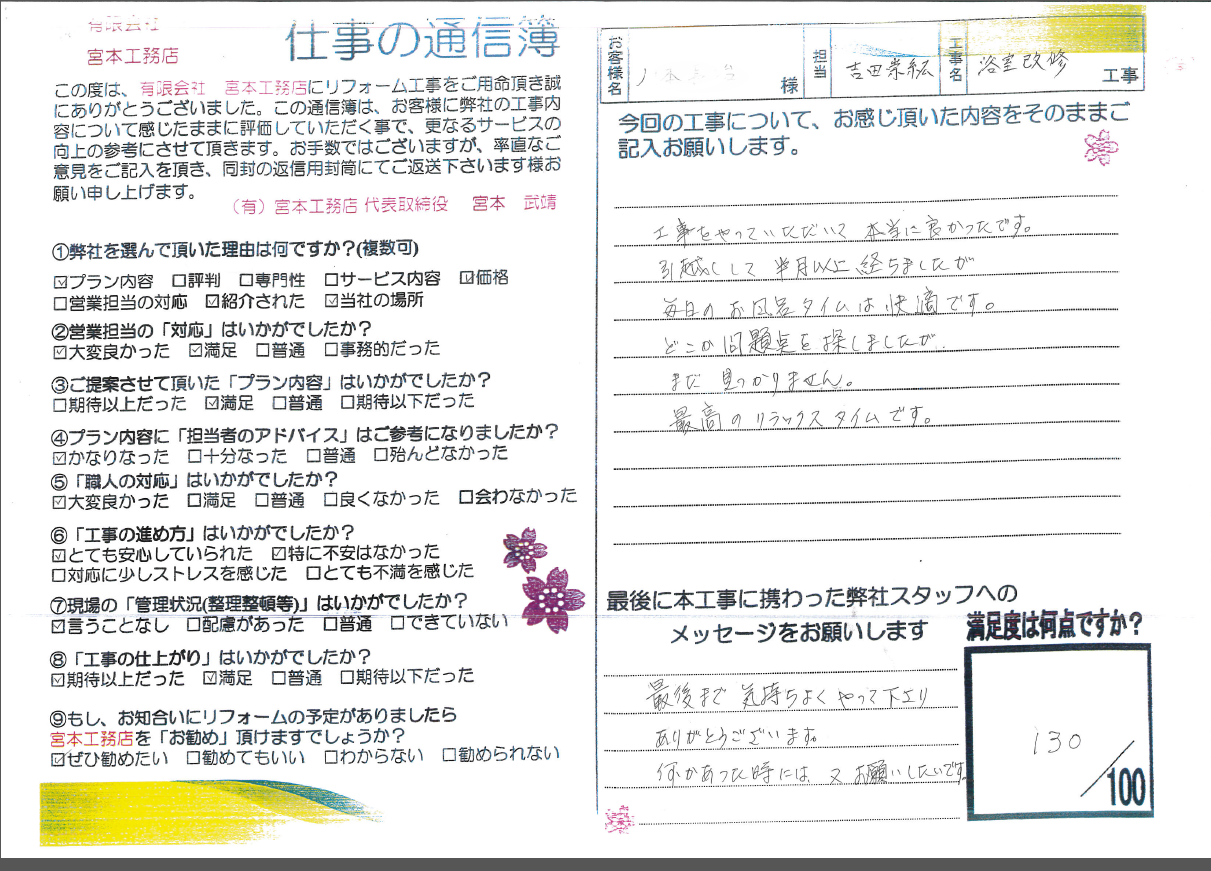 有限会社
宮本工務店
仕事の通信簿
この度は、有限会社 宮本工務店にリフォーム工事をご用命頂き誠
にありがとうございました。この通信簿は、お客様に弊社の工事内
容について感じたままに評価していただく事で、更なるサービスの
向上の参考にさせて頂きます。お手数ではございますが、率直なご
意見をご記入を頂き、同封の返信用封筒にてご返送下さいます様お
願い申し上げます。
（有）宮本工務店 代表取締役 宮本 武靖
①弊社を選んで頂いた理由は何ですか？(複数可)
☑プラン内容 □評判 □専門性 □サービス内容 ☑価格
□営業担当の対応 ☑紹介された ☑当社の場所
②営業担当の「対応」はいかがでしたか？
☑大変良かった ☑満足 □普通 □事務的だった
③ご提案させて頂いた「プラン内容」はいかがでしたか？
□期待以上だった ☑満足 □普通 □期待以下だった
④プラン内容に「担当者のアドバイス」はご参考になりましたか？
☑かなりなった □十分なった □普通 □殆んどなかった
⑤「職人の対応」はいかがでしたか？
☑大変良かった □満足 □普通 □良くなかった □会わなかった
⑥「工事の進め方」はいかがでしたか？
☑とても安心していられた ☑特に不安はなかった
□対応に少しストレスを感じた □とても不満を感じた
⑦現場の「管理状況(整理整頓等)」はいかがでしたか？
☑言うことなし □配慮があった □普通 □できていない
⑧「工事の仕上がり」はいかがでしたか？
☑期待以上だった ☑満足 □普通 □期待以下だった
⑨もし、お知合いにリフォームの予定がありましたら
宮本工務店を「お勧め」頂けますでしょうか？
☑ぜひ勧めたい □勧めてもいい □わからない □勧められない
お客様名 様 担当 吉田 工事名 浴室改修 工事
今回の工事について、お感じ頂いた内容をそのままご
記入お願いします。
工事をやっていただいて 本当に良かったです。
引越しして 半月以上 経ちましたが
毎日の お風呂タイムは 快適です。
どこか 問題点を 探しましたが、
まだ 見つかりません。
最高の リラックスタイムです。
最後に本工事に携わった弊社スタッフへの
メッセージをお願いします
最後まで 気持ちよく やって下さり
ありがとうございます。
何かあった時には 又 お願いしたいです
満足度は何点ですか？
130／100